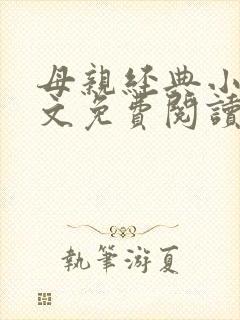 母親經典小
文免費閱讀
執筆游夏